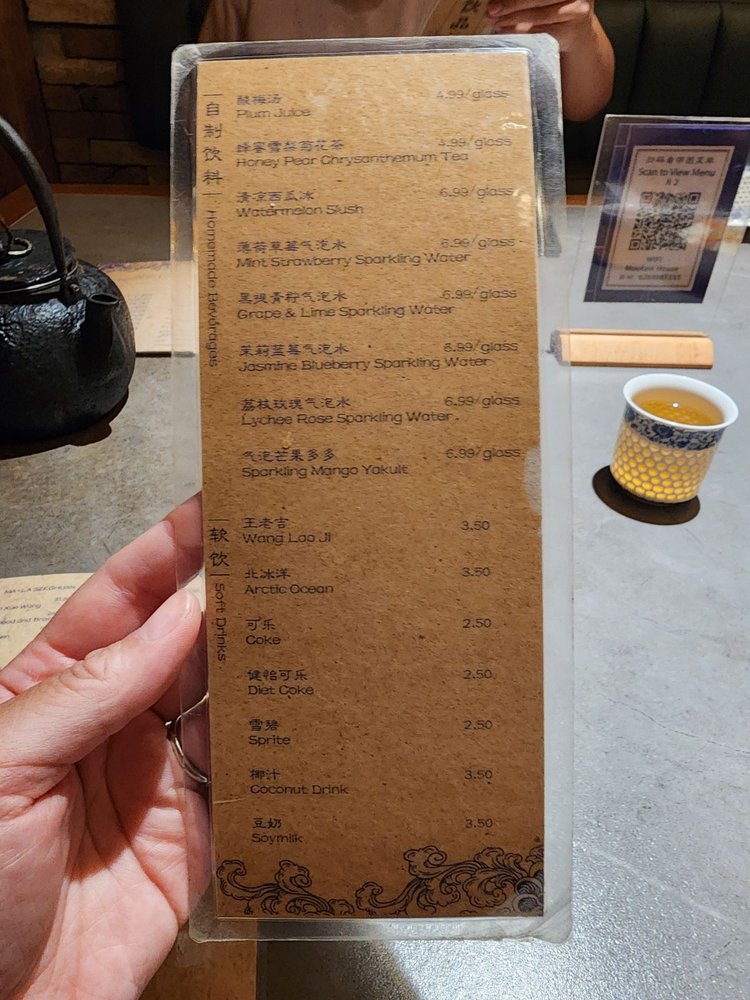 自制饮料
Homemade Beverages
酸梅汤 4.99/glass
Plum Juice
蜂蜜雪梨菊花茶 4.99/glass
Honey Pear Chrysanthemum Tea
清凉西瓜冰 6.99/glass
Watermelon Slush
薄荷草莓气泡水 6.99/glass
Mint Strawberry Sparkling Water
黑提青柠气泡水 6.99/glass
Grape & Lime Sparkling Water
茉莉蓝莓气泡水 6.99/glass
Jasmine Blueberry Sparkling Water
荔枝玫瑰气泡水 6.99/glass
Lychee Rose Sparkling Water
气泡芒果多多 6.99/glass
Sparkling Mango Yakult
软饮
Soft Drinks
王老吉 3.50
Wang Lao Ji
北冰洋 3.50
Arctic Ocean
可乐 2.50
Coke
健怡可乐 2.50
Diet Coke
雪碧 2.50
Sprite
椰汁 3.50
Coconut Drink
豆奶 3.50
Soymilk
Scan to View Menu
WIFI
MA-LA BEEF